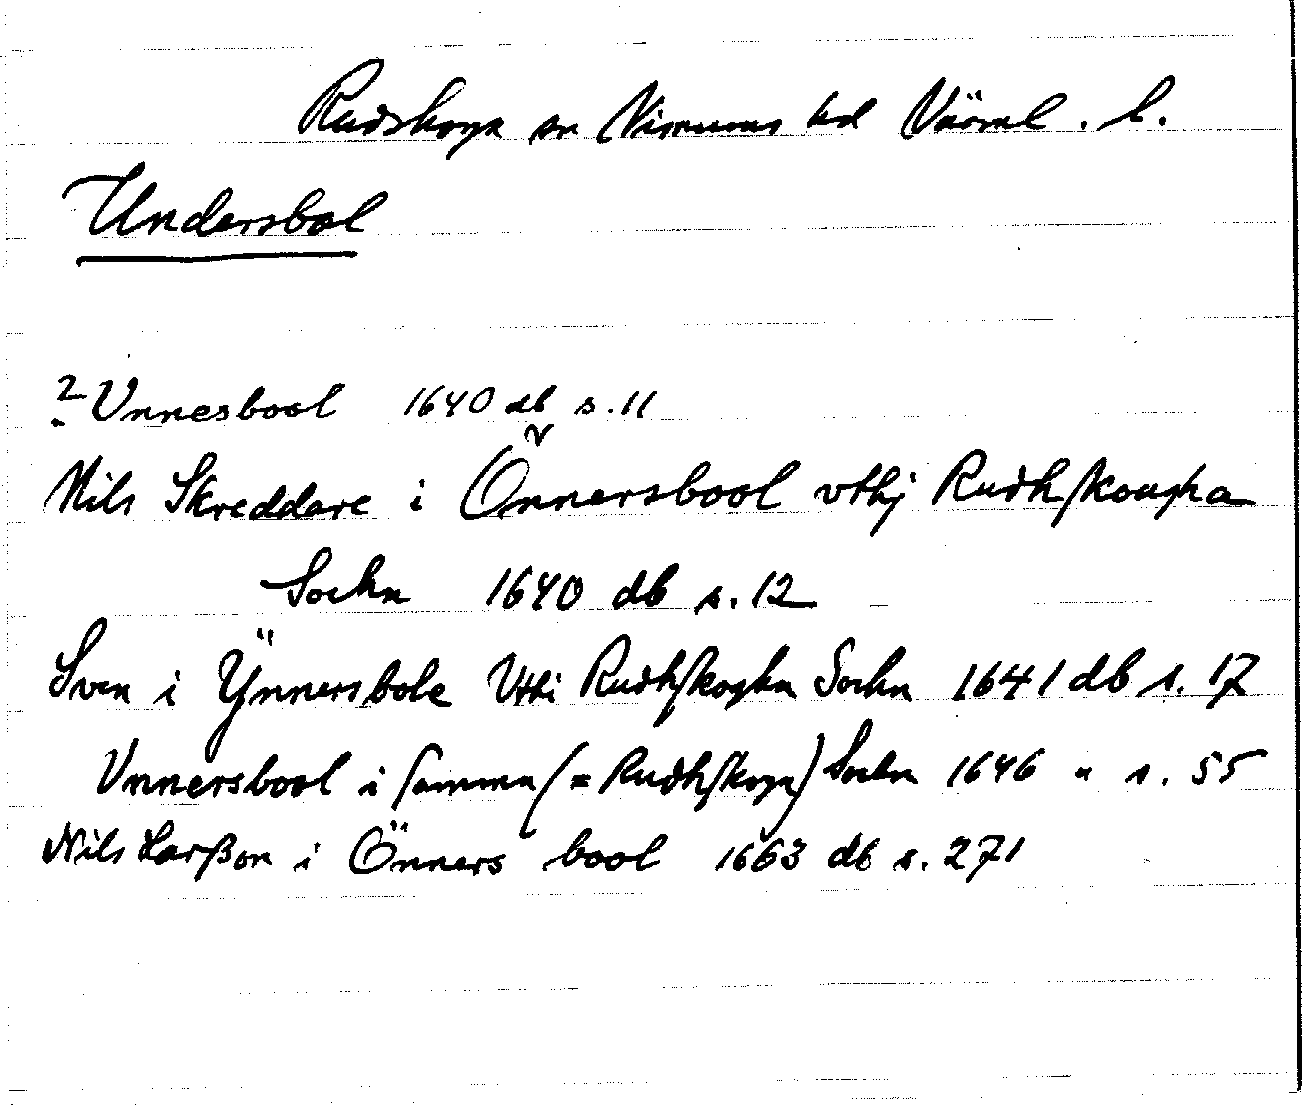 Rudskoga sn Visnums hd Värml. l.
Undersbol
? Vnnesbool 1640 db s. 11
Nils Skreddare i Önnersbool vthj Rudhskougha
Sochn 1640 db s. 12
Sven i Ÿnnersbole Vthi Rudhskogha Sochn 1641 db s. 17
Vnnersbool i samma (= Rudhskoga) Sochn 1646 " s. 55
Nils Larßon i Önners bool 1663 db s. 271